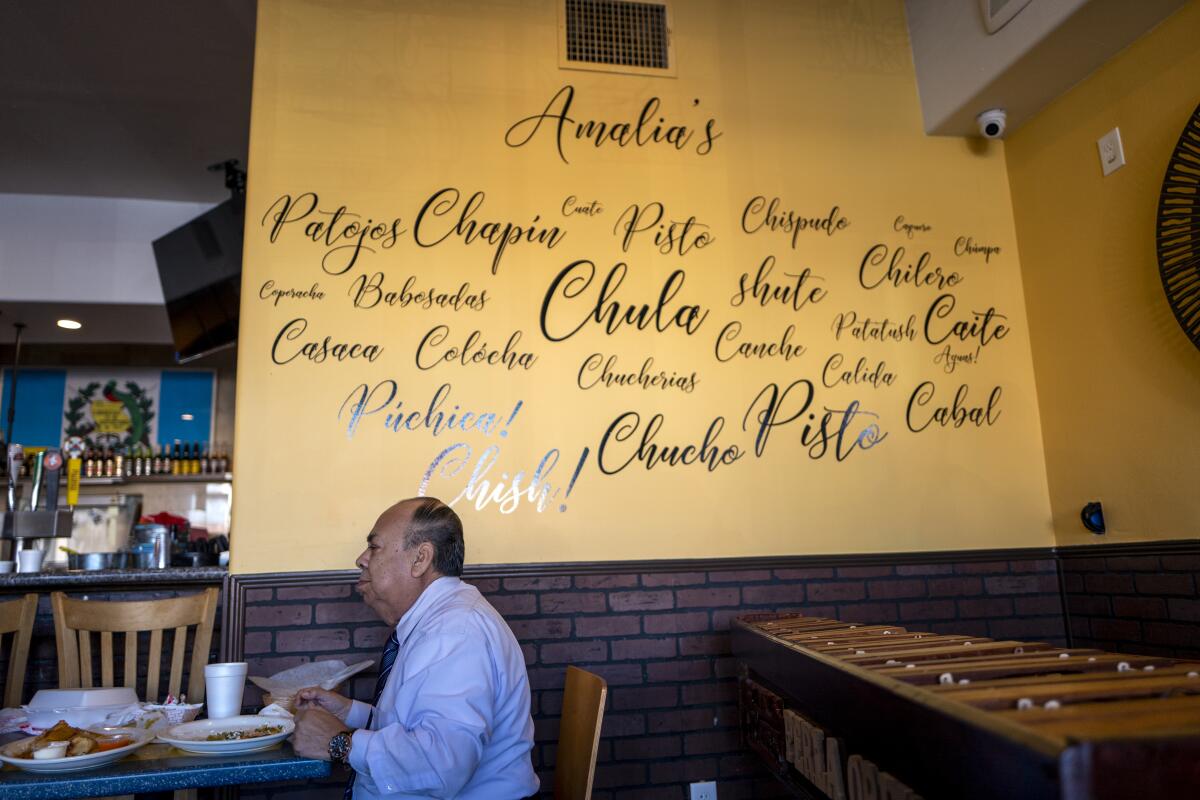 Amalia's
Patojos Chapín Cuate Pisto Chispudo Caquero Chúmpa
Coperacha Babosadas Chula shute Chilero
Casaca Colócha Canche Patatush Caite
Aguas!
Chucherias Calida
Púchica! Chucho Pisto Cabal
Chish!